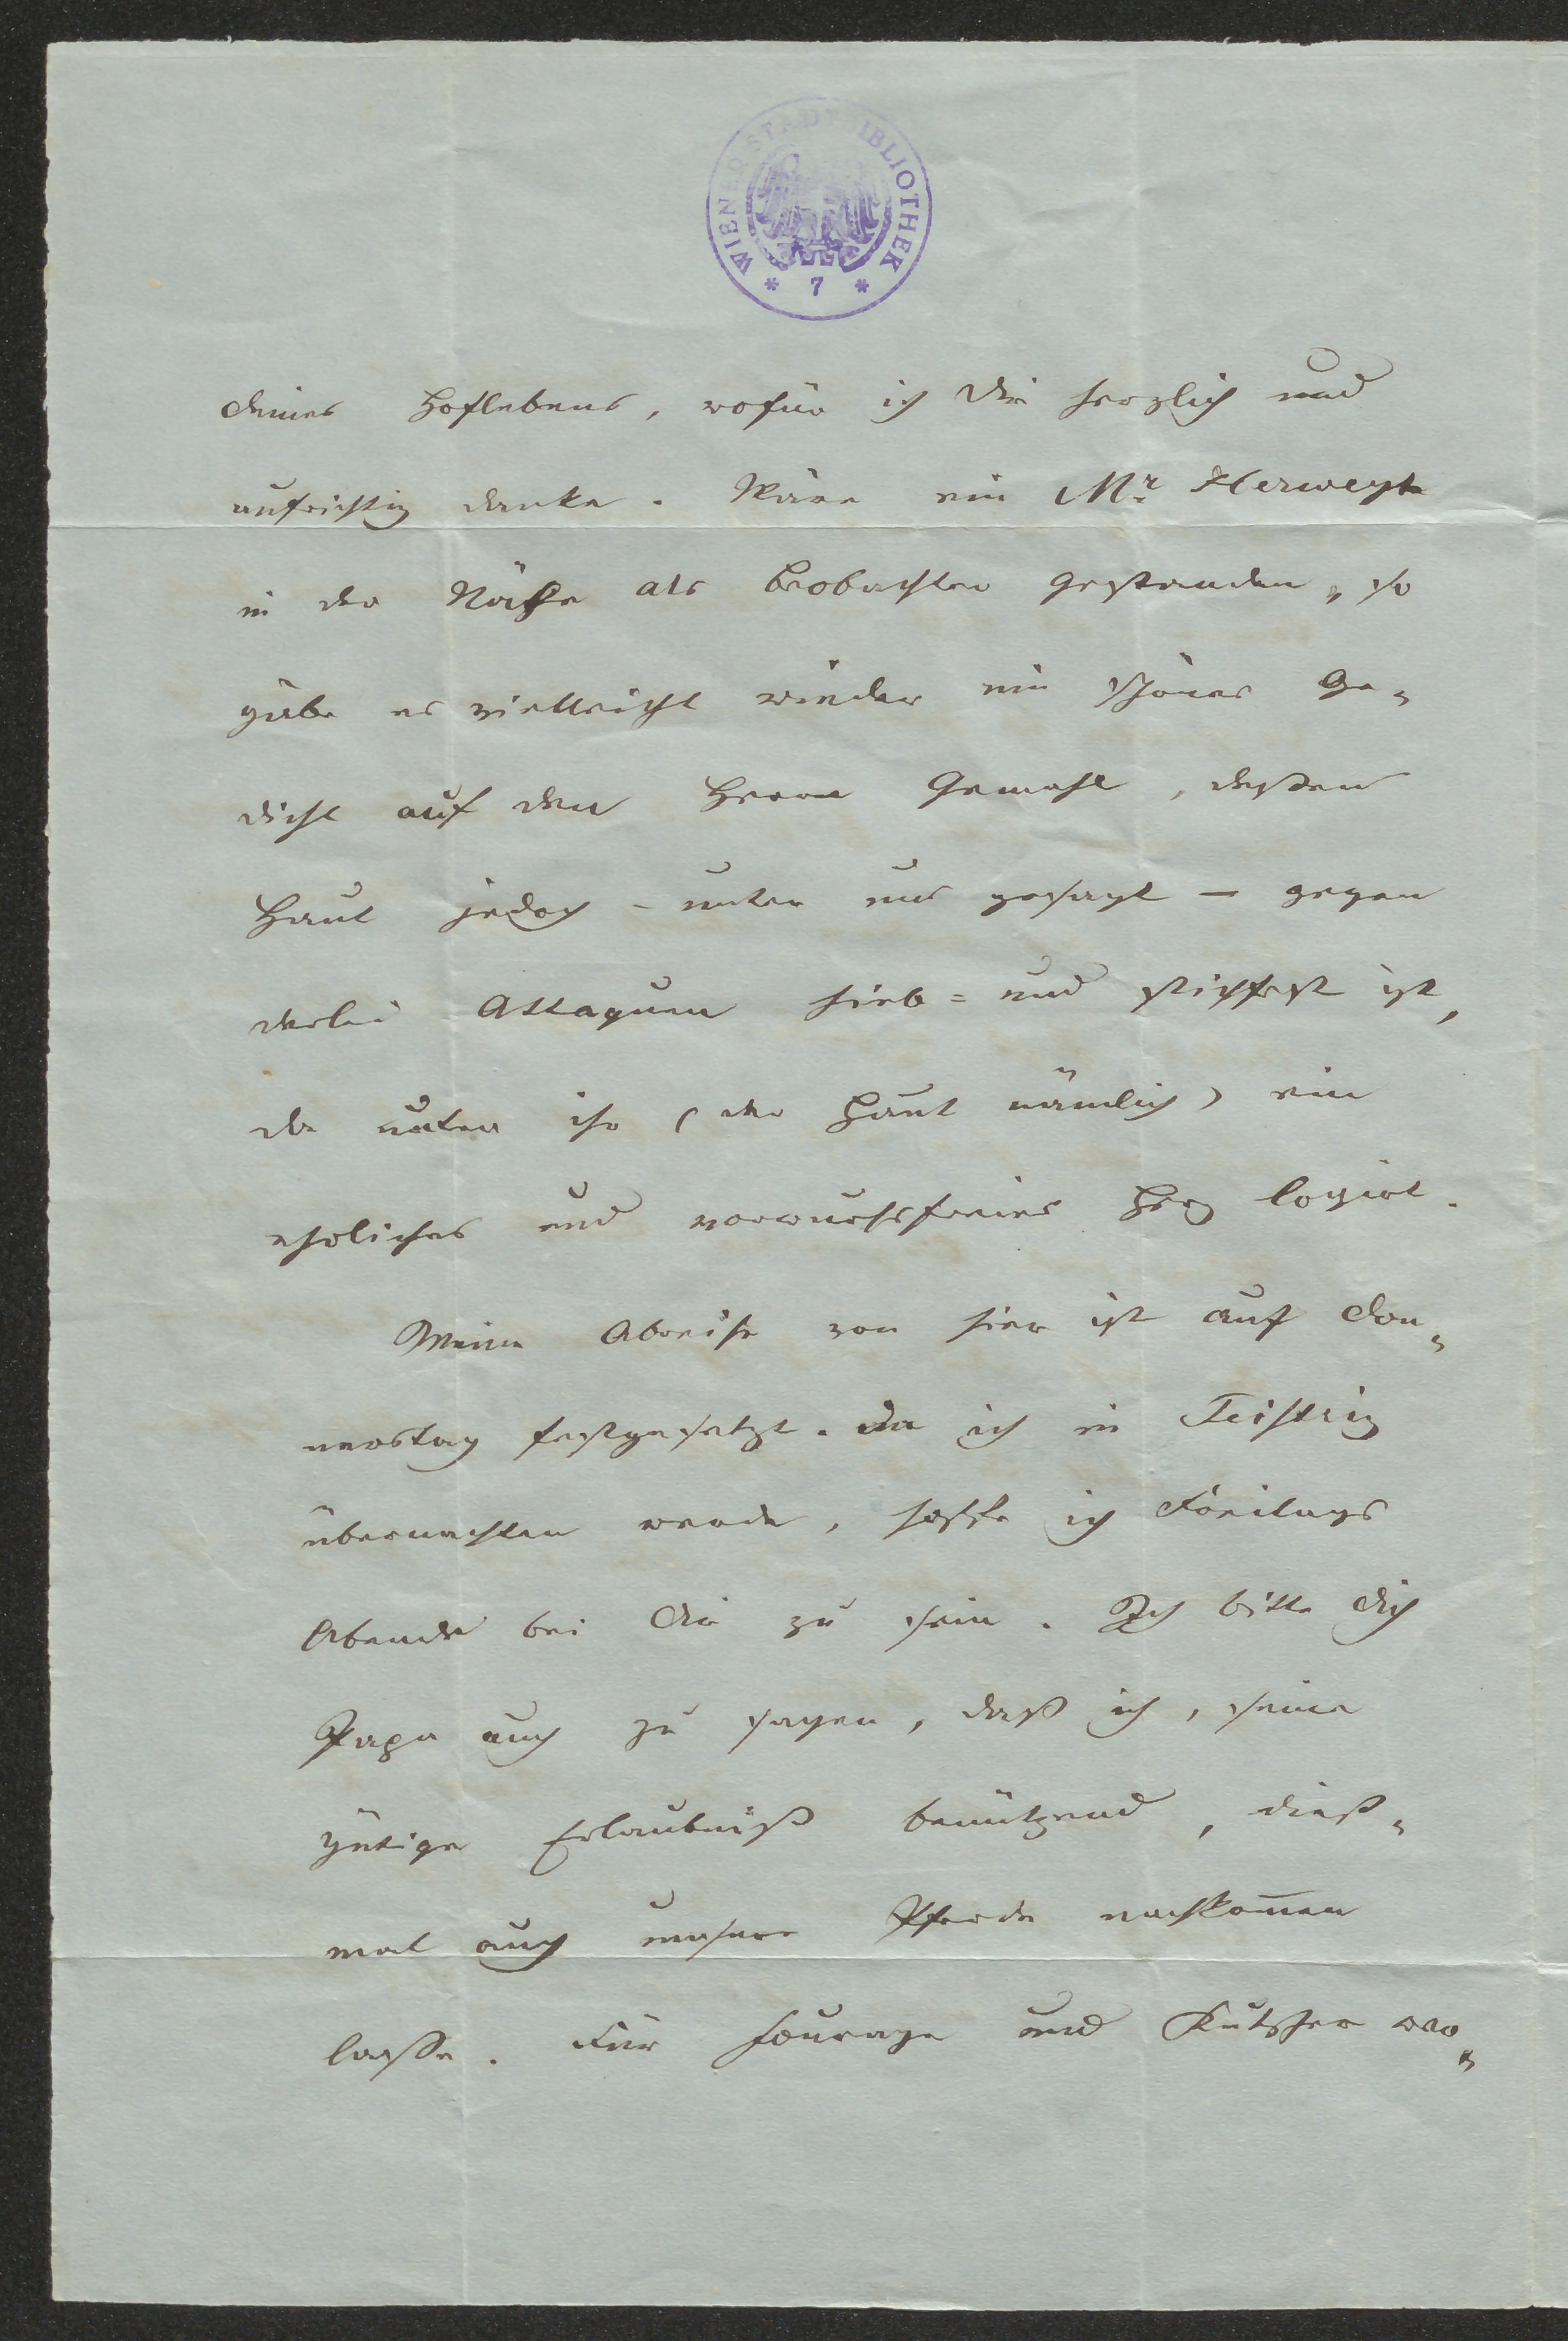 WIENER STADTBIBLIOTHEK
* 7 *
deines Hoflebens, wofür ich Dir herzlich und
aufrichtig danke. Wäre ein Mr. Herwegh
in der Nähe als Beobachter gestanden, so
gäbe es vielleicht wieder ein schönes Ge-
dicht auf den Herrn Gemahl, deßen
Haut jedoch – unter uns gesagt – gegen
derlei Attaquen hieb= und stichfest ist,
da unter ihr (der Haut nämlich) ein
ehrliches und vorwurfsfreies Herz logirt.
Meine Abreise von hier ist auf Don-
nerstag festgesetzt. Da ich in Feistriz
übernachten werde, hoffe ich Freitags
Abends bei Dir zu sein. Ich bitte Dich
Papa auch zu sagen, daß ich, seine
gütige Erlaubniß benützend, dieß-
mal auch unsere Pferde nachkom̄en
lasse. Für Fourage und Kutscher wer-